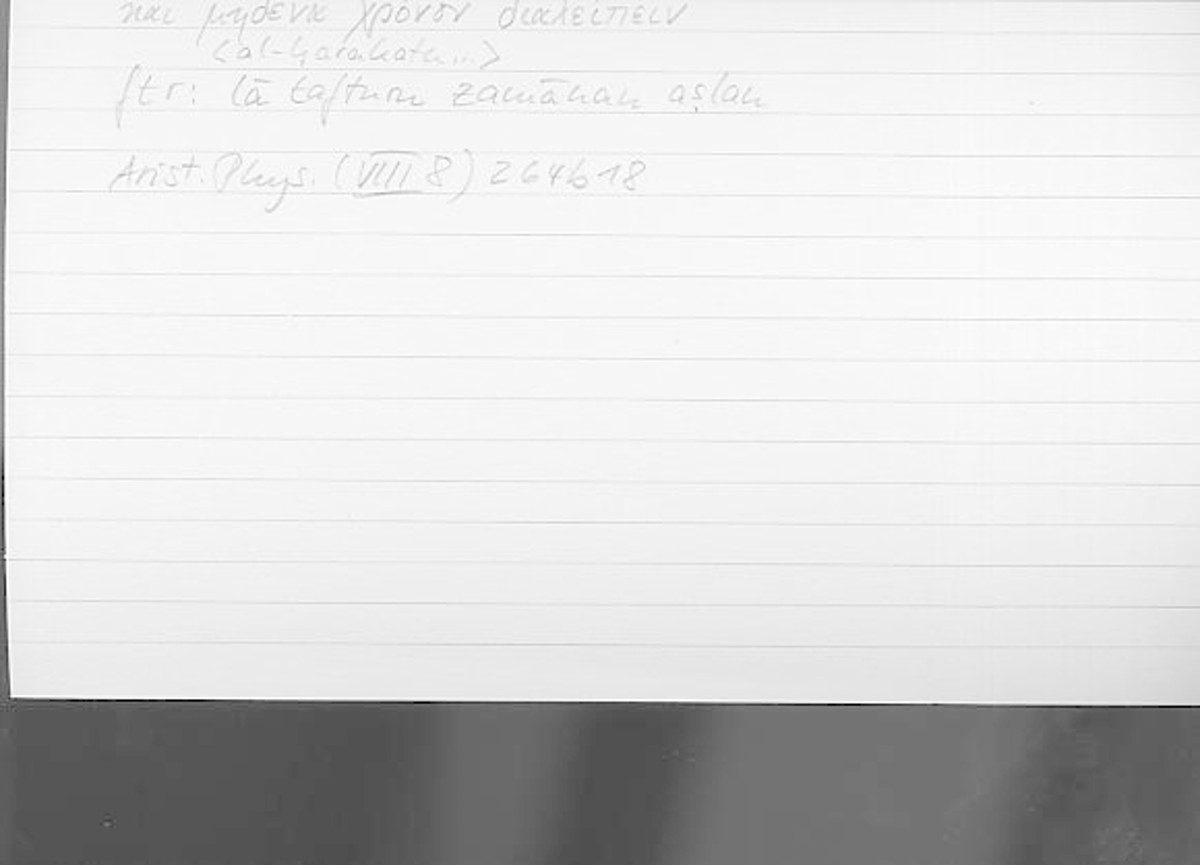 και μηδενα χρονον διαλειπειν
<al-ḥarakatu...>
ftr: lā taftur zamānan aṣlan
Arist. Phys. (VIII 8) 264b18